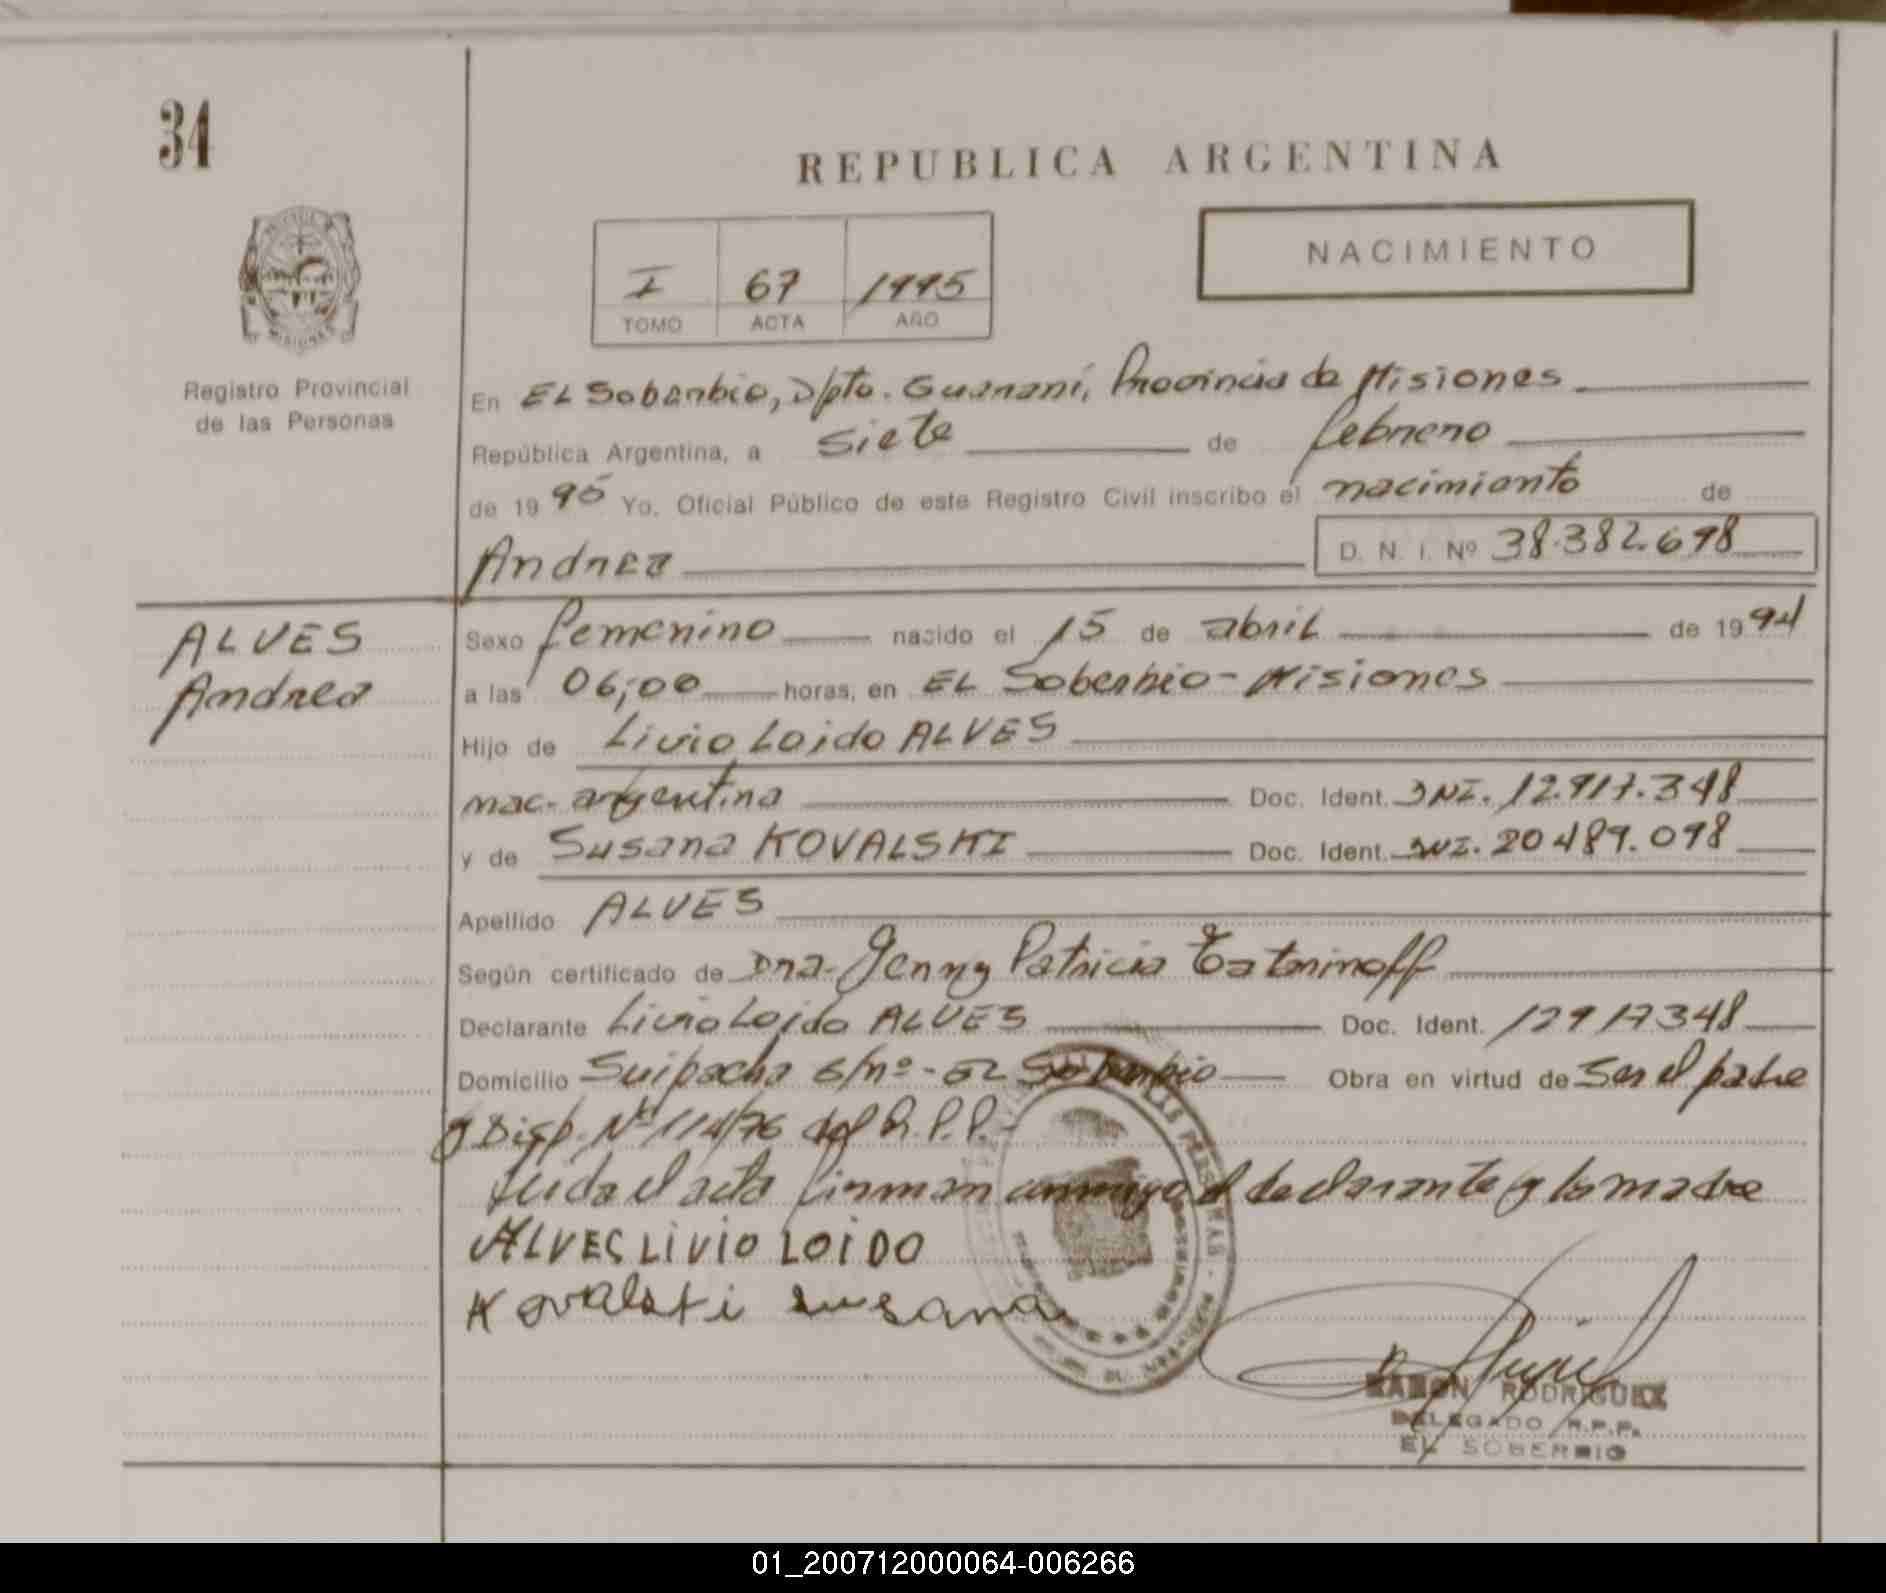 34
REPUBLICA ARGENTINA
NACIMIENTO
I 67 1995
TOMO ACTA AÑO
Registro Provincial
de las Personas
En El Soberbio, Dpto. Guaraní, Provincia de Misiones
República Argentina, a siete de febrero
de 1995 Yo, Oficial Público de este Registro Civil inscribo el nacimiento de
Andrea D. N. I. Nº 38.382.698
ALVES
Andrea
Sexo femenino nacido el 15 de abril de 1994
a las 06,00 horas, en El Soberbio - Misiones
Hijo de Livio Loido ALVES
nac. argentina Doc. Ident. DNI. 12.917.348
y de Susana KOVALSKI Doc. Ident. DNI. 20489.098
Apellido ALVES
Según certificado de Dra. Jenny Patricia
Declarante Livio Loido ALVES Doc. Ident. 12917348
Domicilio Suipacha s/nº - El Soberbio Obra en virtud de ser el padre
y Disp. Nº 114/76 del R.P.P.
Leida el acta firman conmigo el declarante y la madre
ALVES LIVIO LOIDO
Kovalski susana
RAMON RODRIGUEZ
DELEGADO R.P.P.
EL SOBERBIO
01_200712000064-006266